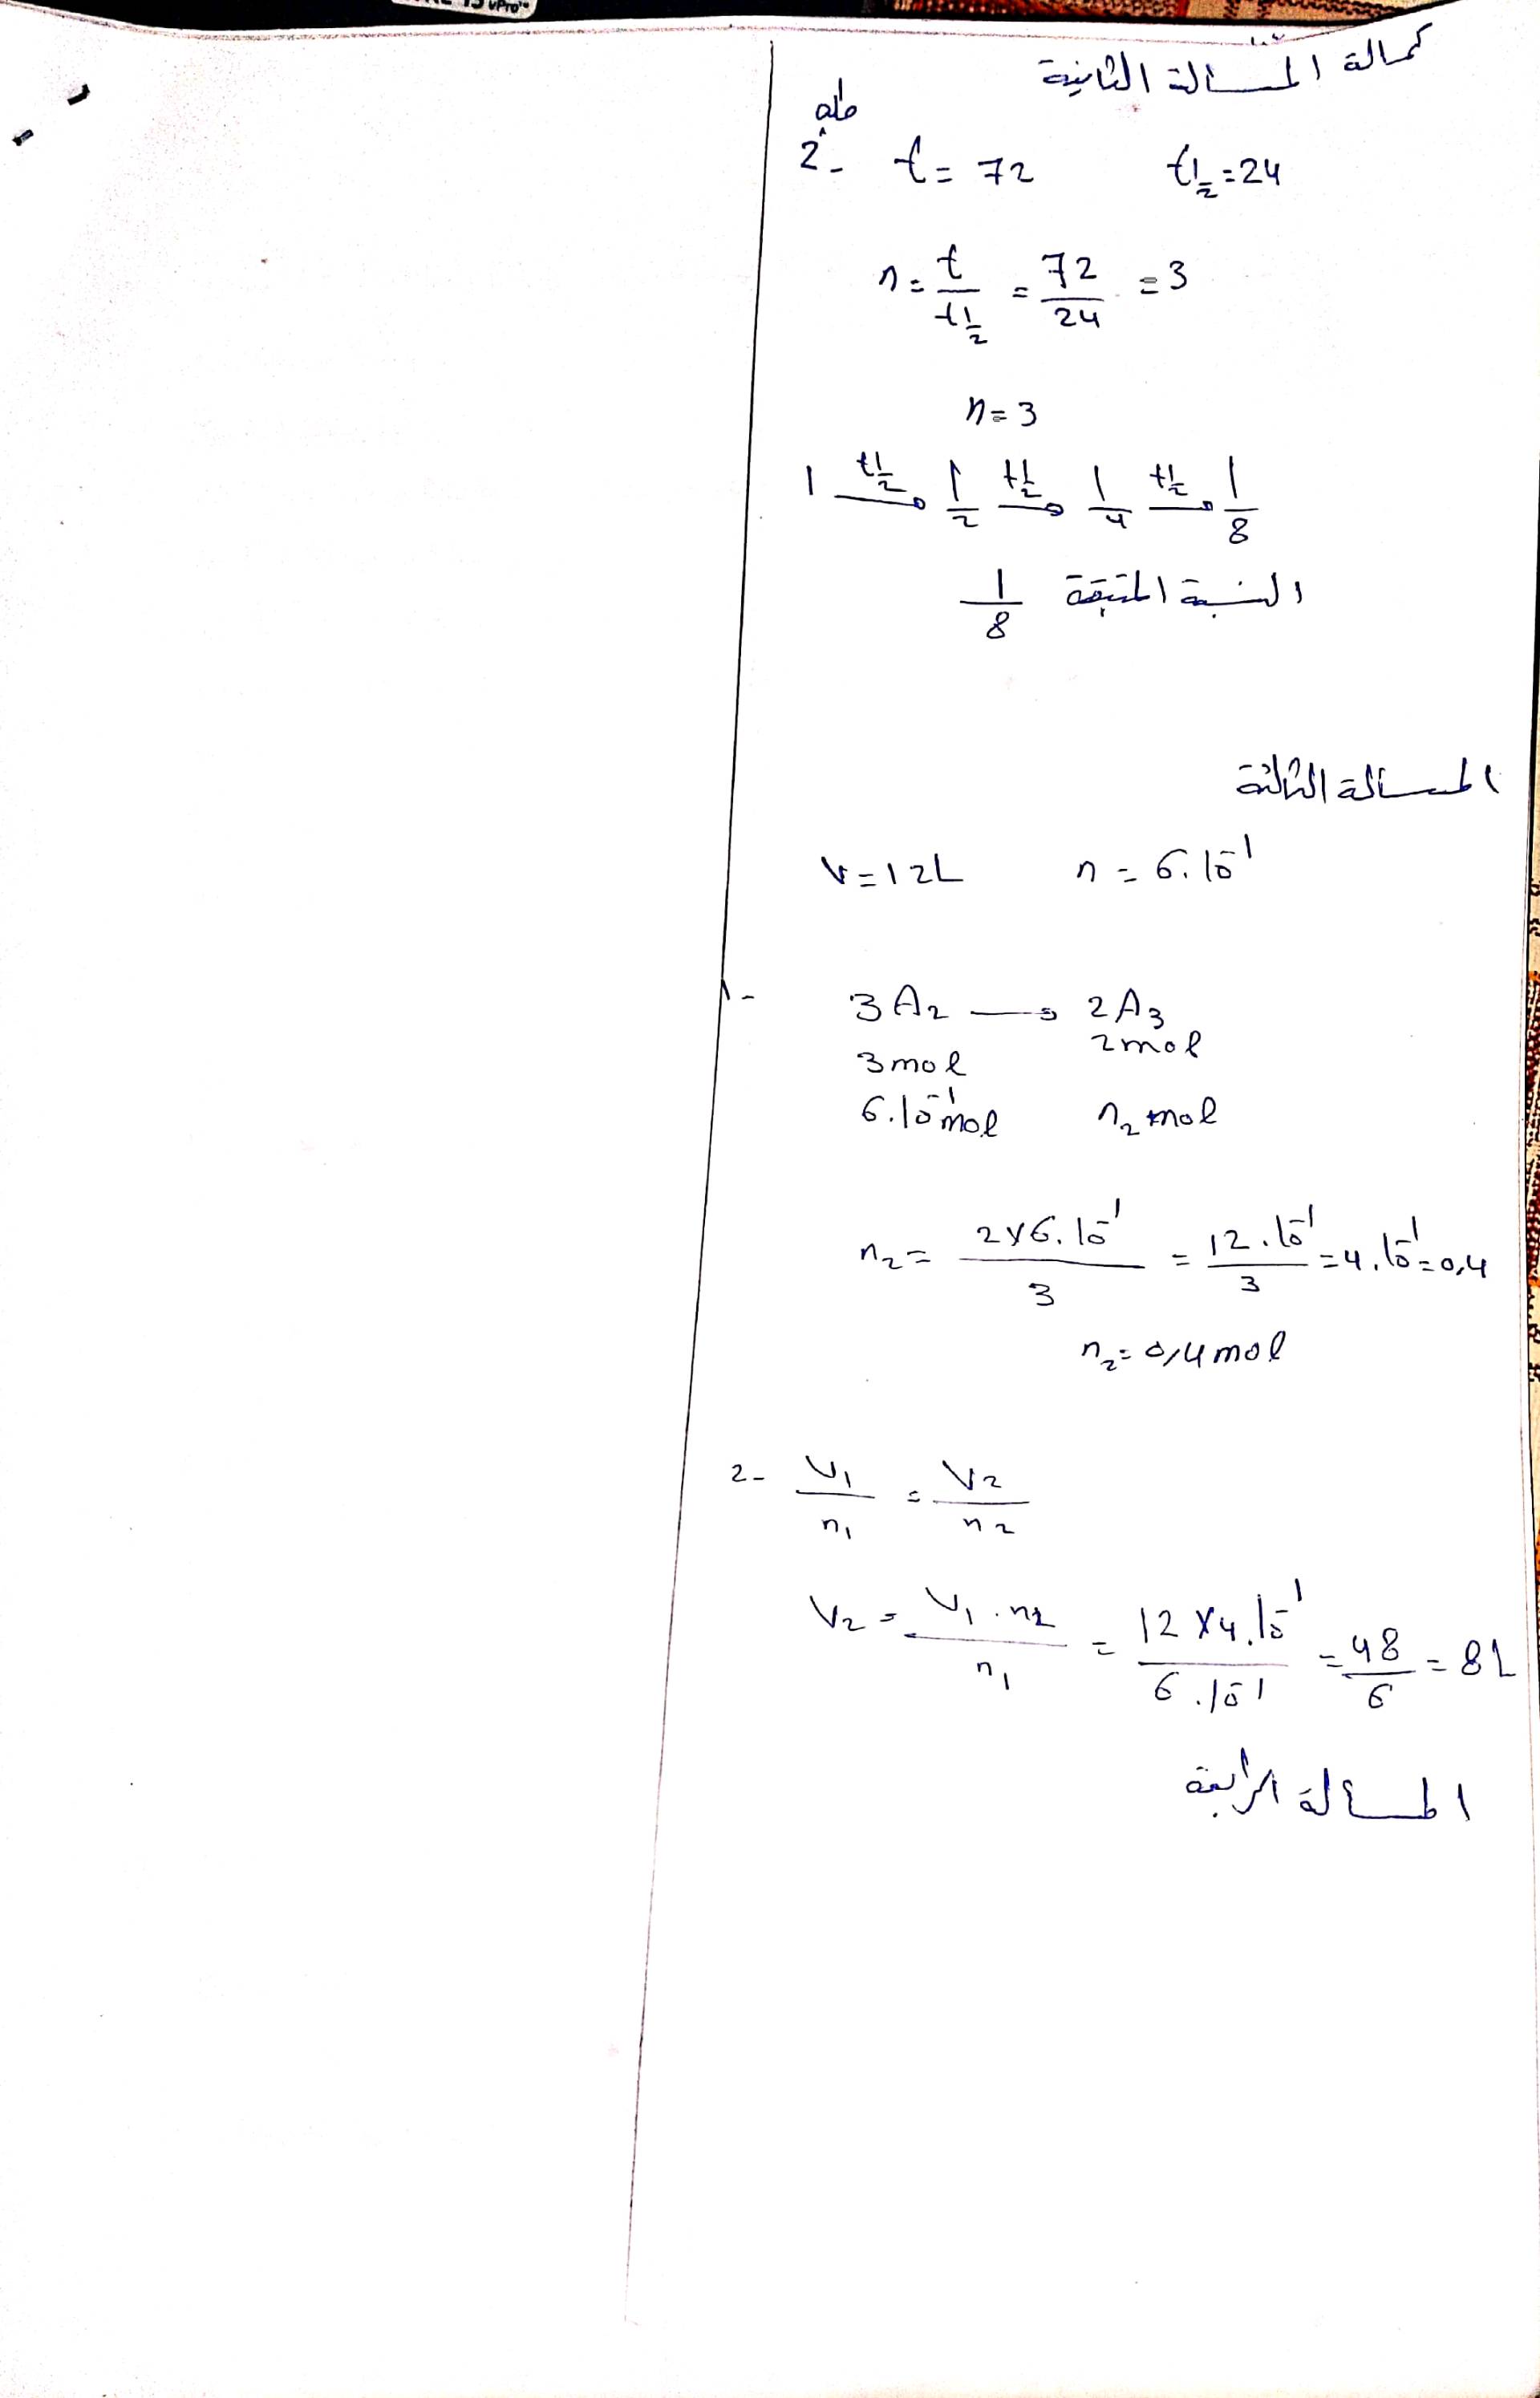 كمالة المسالة الثانية
2- t = 72 t1/2 = 24
n = t/t1/2 = 72/24 = 3
n = 3
1 →t1/2 1/2 →t1/2 1/4 →t1/2 1/8
النسبة المتبقة 1/8
المسألة الثالثة
V = 12L n = 6.10⁻¹
1- 3A₂ → 2A₃
3mol 2mol
6.10⁻¹mol n₂ mol
n₂ = 2×6.10⁻¹/3 = 12.10⁻¹/3 = 4.10⁻¹ = 0,4
n₂ = 0,4 mol
2- V₁/n₁ = V₂/n₂
V₂ = V₁.n₂/n₁ = 12×4.10⁻¹/6.10⁻¹ = 48/6 = 8L
المسألة الرابعة